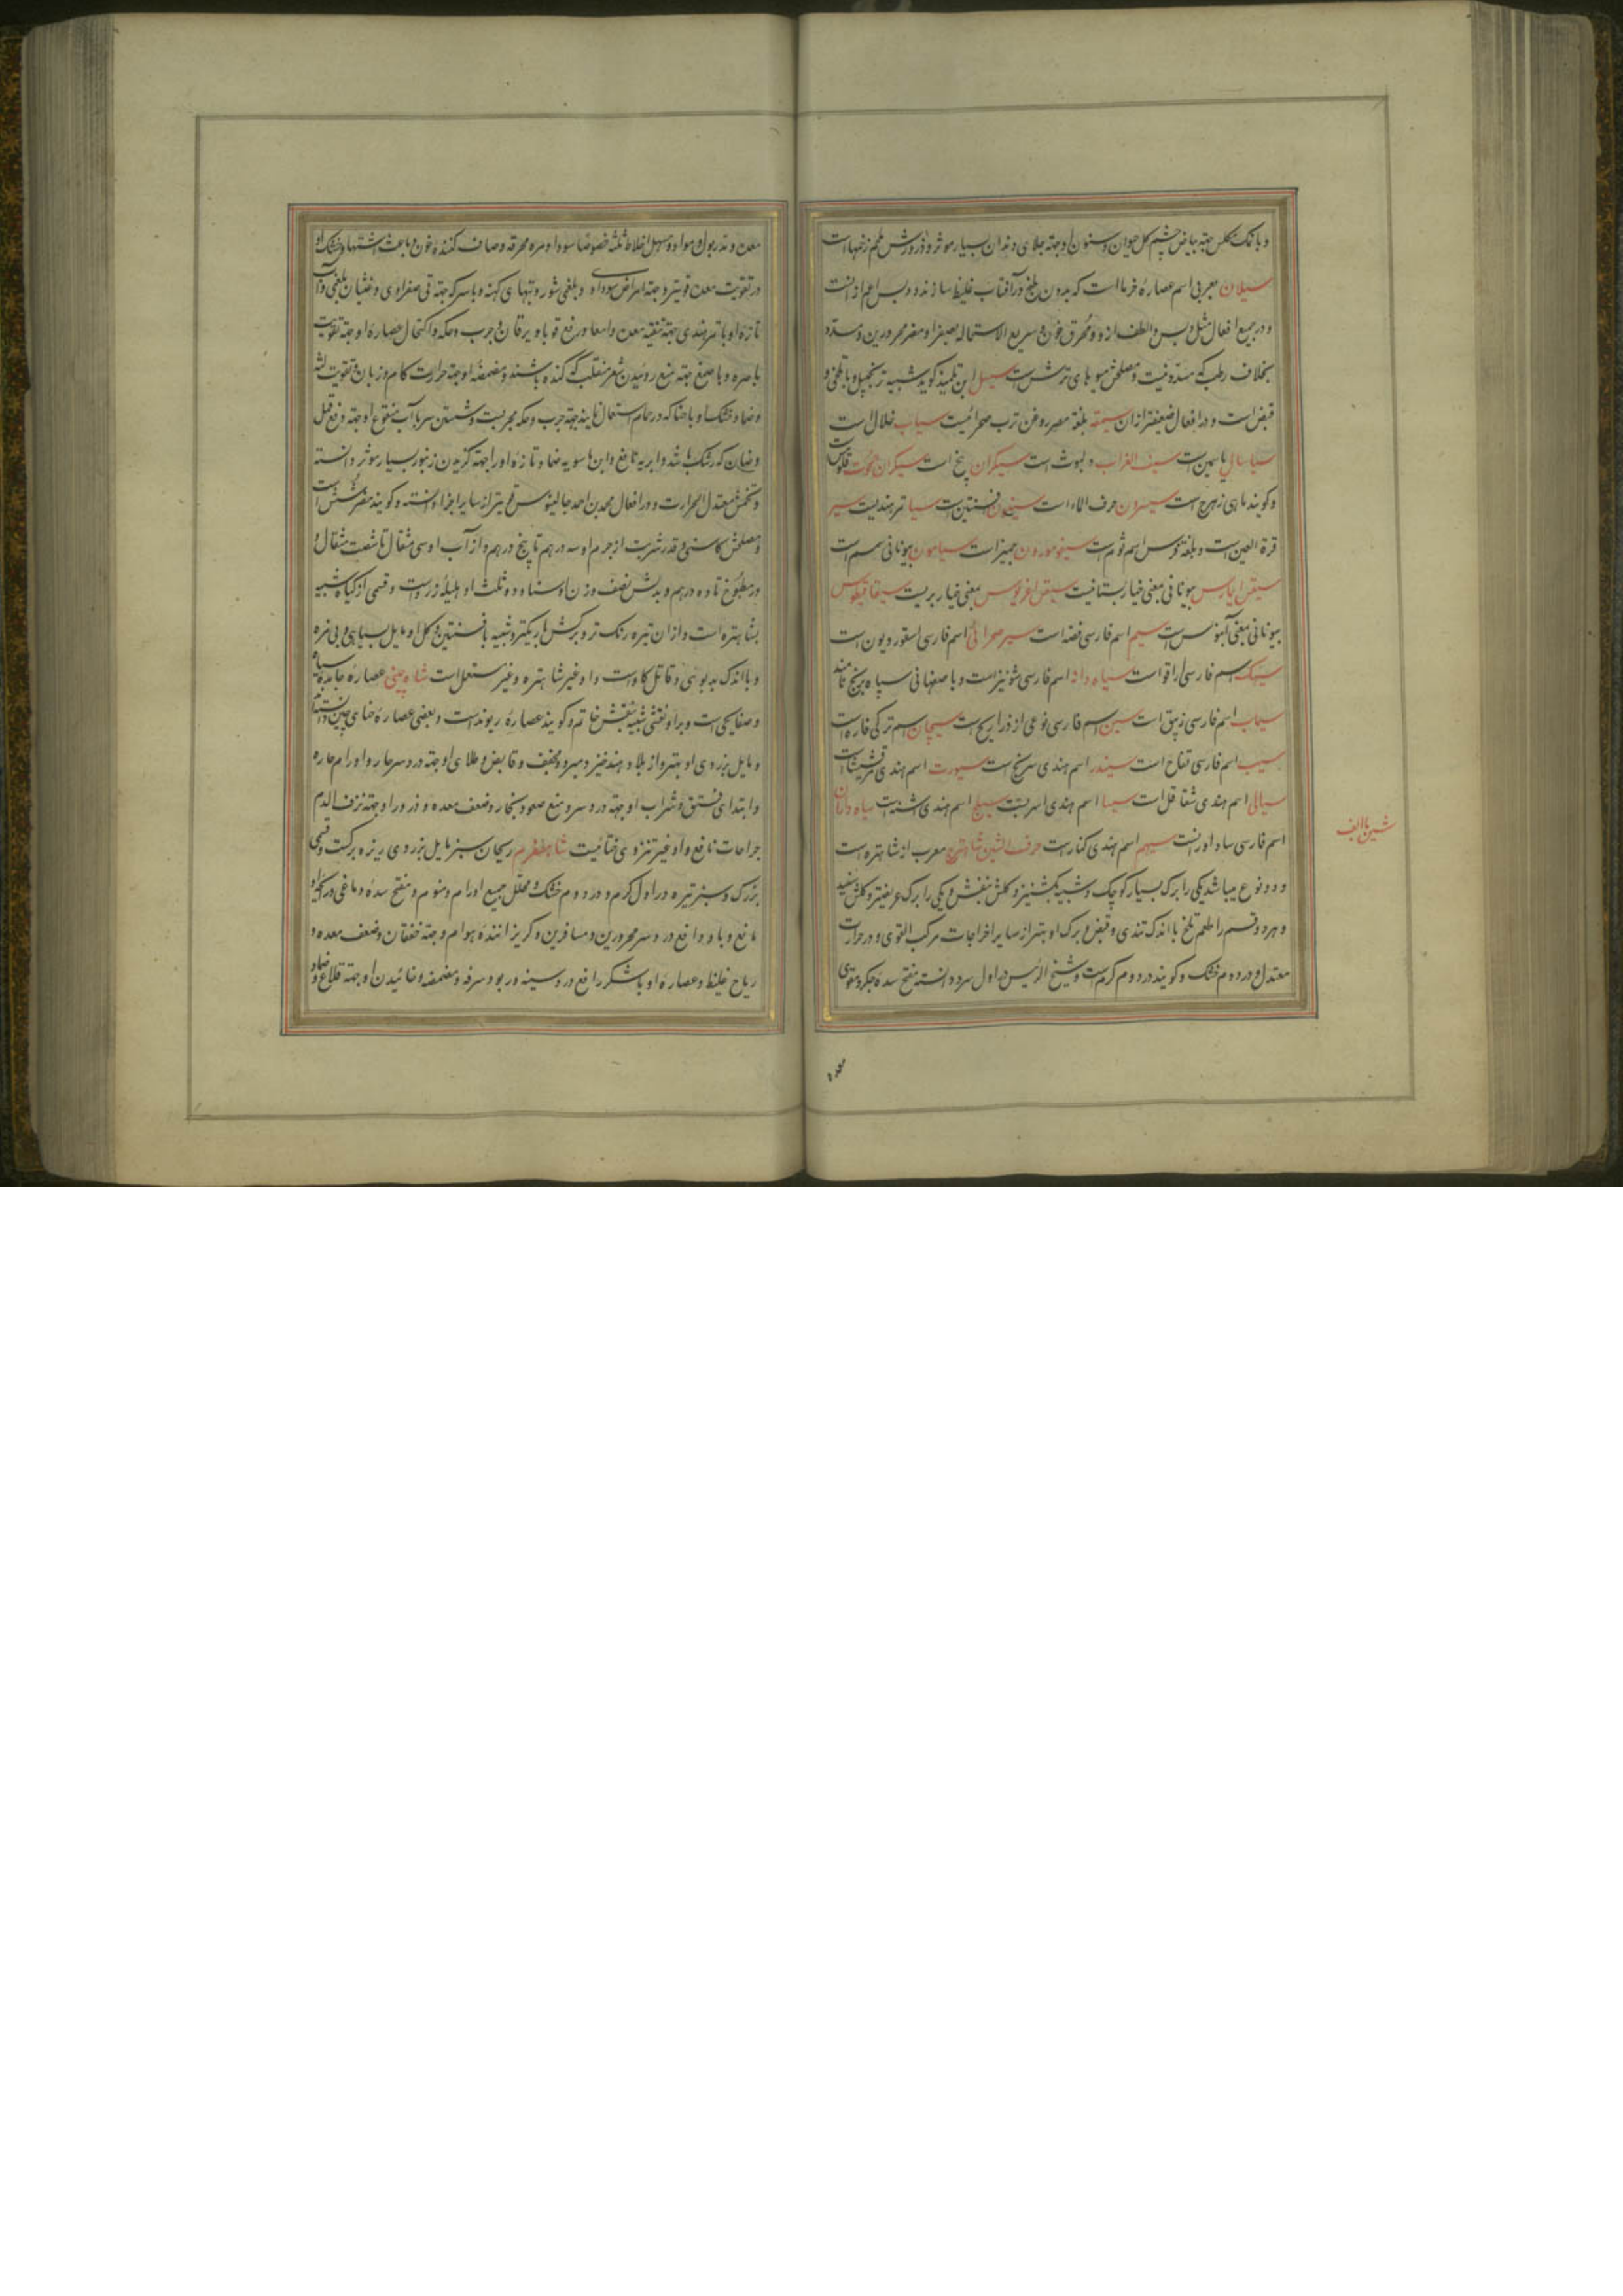 و با نمک مکلس جهته بیاض چشم کل حیوان و سنون او جهته جلای دندان بسیار موثر و ذرورش ملحم زخمهاست
سیلان بعربی اسم عصارهٔ خرما است که بدون طبخ در آفتاب غلیظ سازند و دبس اعم از انست
و در جمیع افعال مثل دبس و الطف از و و محرق خون و سریع الاستحاله بصفرا و مضر محرورین و مسدد
بخلاف رطب که مسدد نیست و مصلحش میوهای ترش است سیسل ابن تلمیذ کوید شبیه بزنجبیل و با تلخی و
قبض است و در افعال ضعیفتر از ان بلغة مصر و فن ترب صحرائیست سیاب خلال است
سیاسال یاسمین است سیف الغراب دلبوث است سیکران بنج است سیکران حوت
و کویند ماهی زهرج است حرف الماء است افسنتین است تمر هندیست سیر
قرة العین است و بلغة فرس اسم ثوم است سیقومورون جمیز است بیونانی سمسم است
بیونانی بمعنی خیار بستانیست بمعنی خیار بریست
بیونانی بمعنی آبنوس است سیم اسم فارسی فضه است سیر صحرائی اسم فارسی اسقوردیون است
اسم فارسی است سیاه دانه اسم فارسی شونیز است و باصفهانی سیاه برنج نامند
سیماب اسم فارسی زیبق است سین اسم فارسی نوعی از ذراریح است سیچان اسم ترکی فاره است
سیب اسم فارسی تفاح است سیندر اسم هندی سرنج است سیورت اسم هندی است
سیالی اسم هندی شقاقل است سیسا اسم هندی اسرب است اسم هندی اشنه است سیاه داران
اسم فارسی است اسم هندی کنار است حرف الشین شاهترج معرب از شاهتره است
و دو نوع میباشد یکی را برک بسیار کوچک و شبیه بکشنیز و کلش بنفش و یکی را برک عریضتر و کلش سفید
و هر دو قسم را طعم تلخ با اندک تندی و قبض و برک او بهتر از سایر اجزا جات مرکب القوی و در حرارت
معتدل و در دوم خشک و کویند در دوم کرم است و شیخ الرئیس در اول سرد دانسته مفتح سدهٔ جکر و مقوی
معده
شین با الف
معده و مدر بول و مواد و مسهل اخلاط ثلثه خصوصا سودا و مره محرقه و صاف کنندهٔ خون و باعث اشتها و خشک او
در تقویت معده قویتر و جهته امراض سوداوی و بلغمی شور و تبهای کهنه و با سرکه جهته قی صفراوی و غثیان بلغمی و آب
تازهٔ او با تمر هندی جهته تنقیه معده و امعا و رفع قوبا و یرقان و جرب و حکه و اکتحال عصارهٔ او جهته تقویت
باصره و با صمغ جهته منع روئیدن شعر منقلب که کنده باشند و مضمضهٔ او جهته حرارت کام و زبان و تقویت لثه
و ضماد خشک او با حنا که در حمام استعمال نمایند جهته جرب و حکه مجربست و شستن سر با آب منقوع او جهته رفع قمل
و که رشک باشد و ابریه نافع و ابن ماسویه ضماد تازهٔ او را جهته کزیدن زنبور بسیار موثر دانسته
و تخمش معتدل الحرارت و در افعال محمد بن احمد جالینوس قویتر از سایر اجزا دانسته و کویند مضر شش است
و مصلحش کاسنی و قدر شربت از جرم او سه درهم تا پنج درهم و از آب او سی مثقال تا شصت مثقال و
در مطبوخ تا ده درهم و بدلش نصف وزن او سنا و دو ثلث او هلیلهٔ زرد است و قسمی از کیاه شبیه
بشاهتره است و از ان تیره رنک تر و برکش باریکتر و شبیه بافسنتین و کل او مایل بسیاهی و بی مزه
و با اندک بدبوئی و قاتل کاو است و او غیر شاهتره و غیر مستعمل است شاه چینی عصارهٔ جامدهٔ سیاه
و صفایحی است و بر او نقشی شبیه بنقش خاتم و کویند عصارهٔ ریوند است و بعضی عصارهٔ حنای چین دانستند
و مایل بزردی او بهتر و از بلاد هند خیزد و سرد و مجفف و قابض و طلای او جهته درد سر حار و اورام حاره
و ابتدای فتق و شراب او جهته درد سر و منع صعود بخار و ضعف معده و ذرور او جهته نزف الدم
جراحات نافع و او غیر ختائیست شاهسفرم ریحان سبز مایل بزردی ریزه برکست و قسمی
بزرک و سبز تیره در اول کرم و در دوم خشک و محلل جمیع اورام و منوم و مفتح سدهٔ دماغی و رایحهٔ او
نافع وبا و دافع درد سر محرورین و مسافرین و کریزانندهٔ هوام و جهته خفقان و ضعف معده و
ریاح غلیظ و عصارهٔ او با شکر رافع درد سینه و ربو و سرفه و مضمضه و خائیدن او جهته قلاع و ضماد